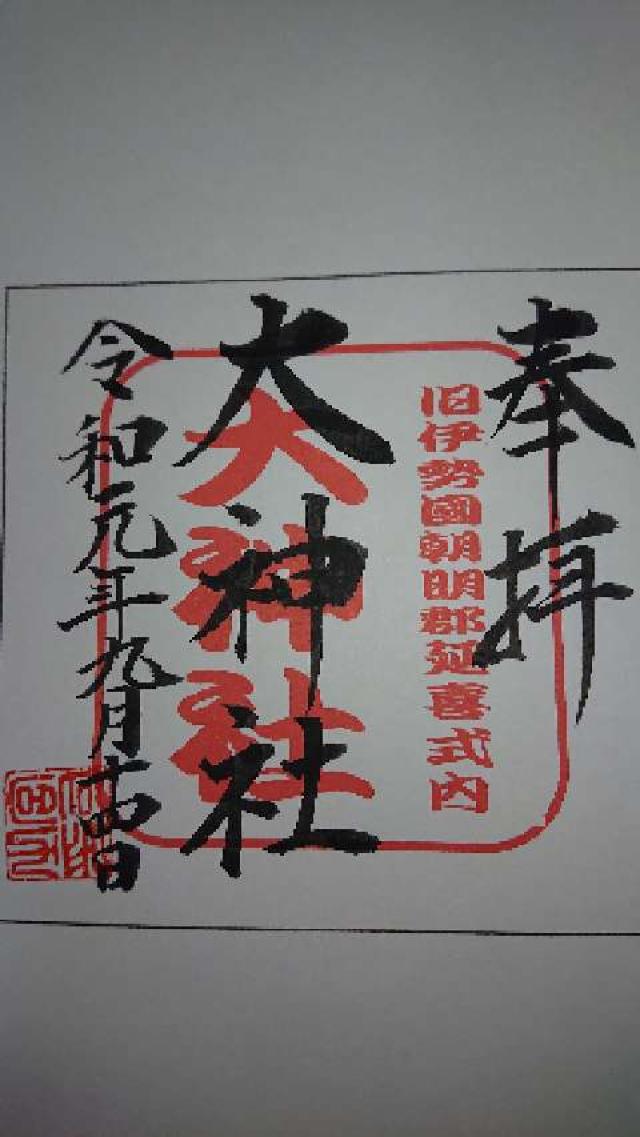 奉拝
旧伊勢國朝明郡延喜式内
大神社
大神社
令和元年九月十四日